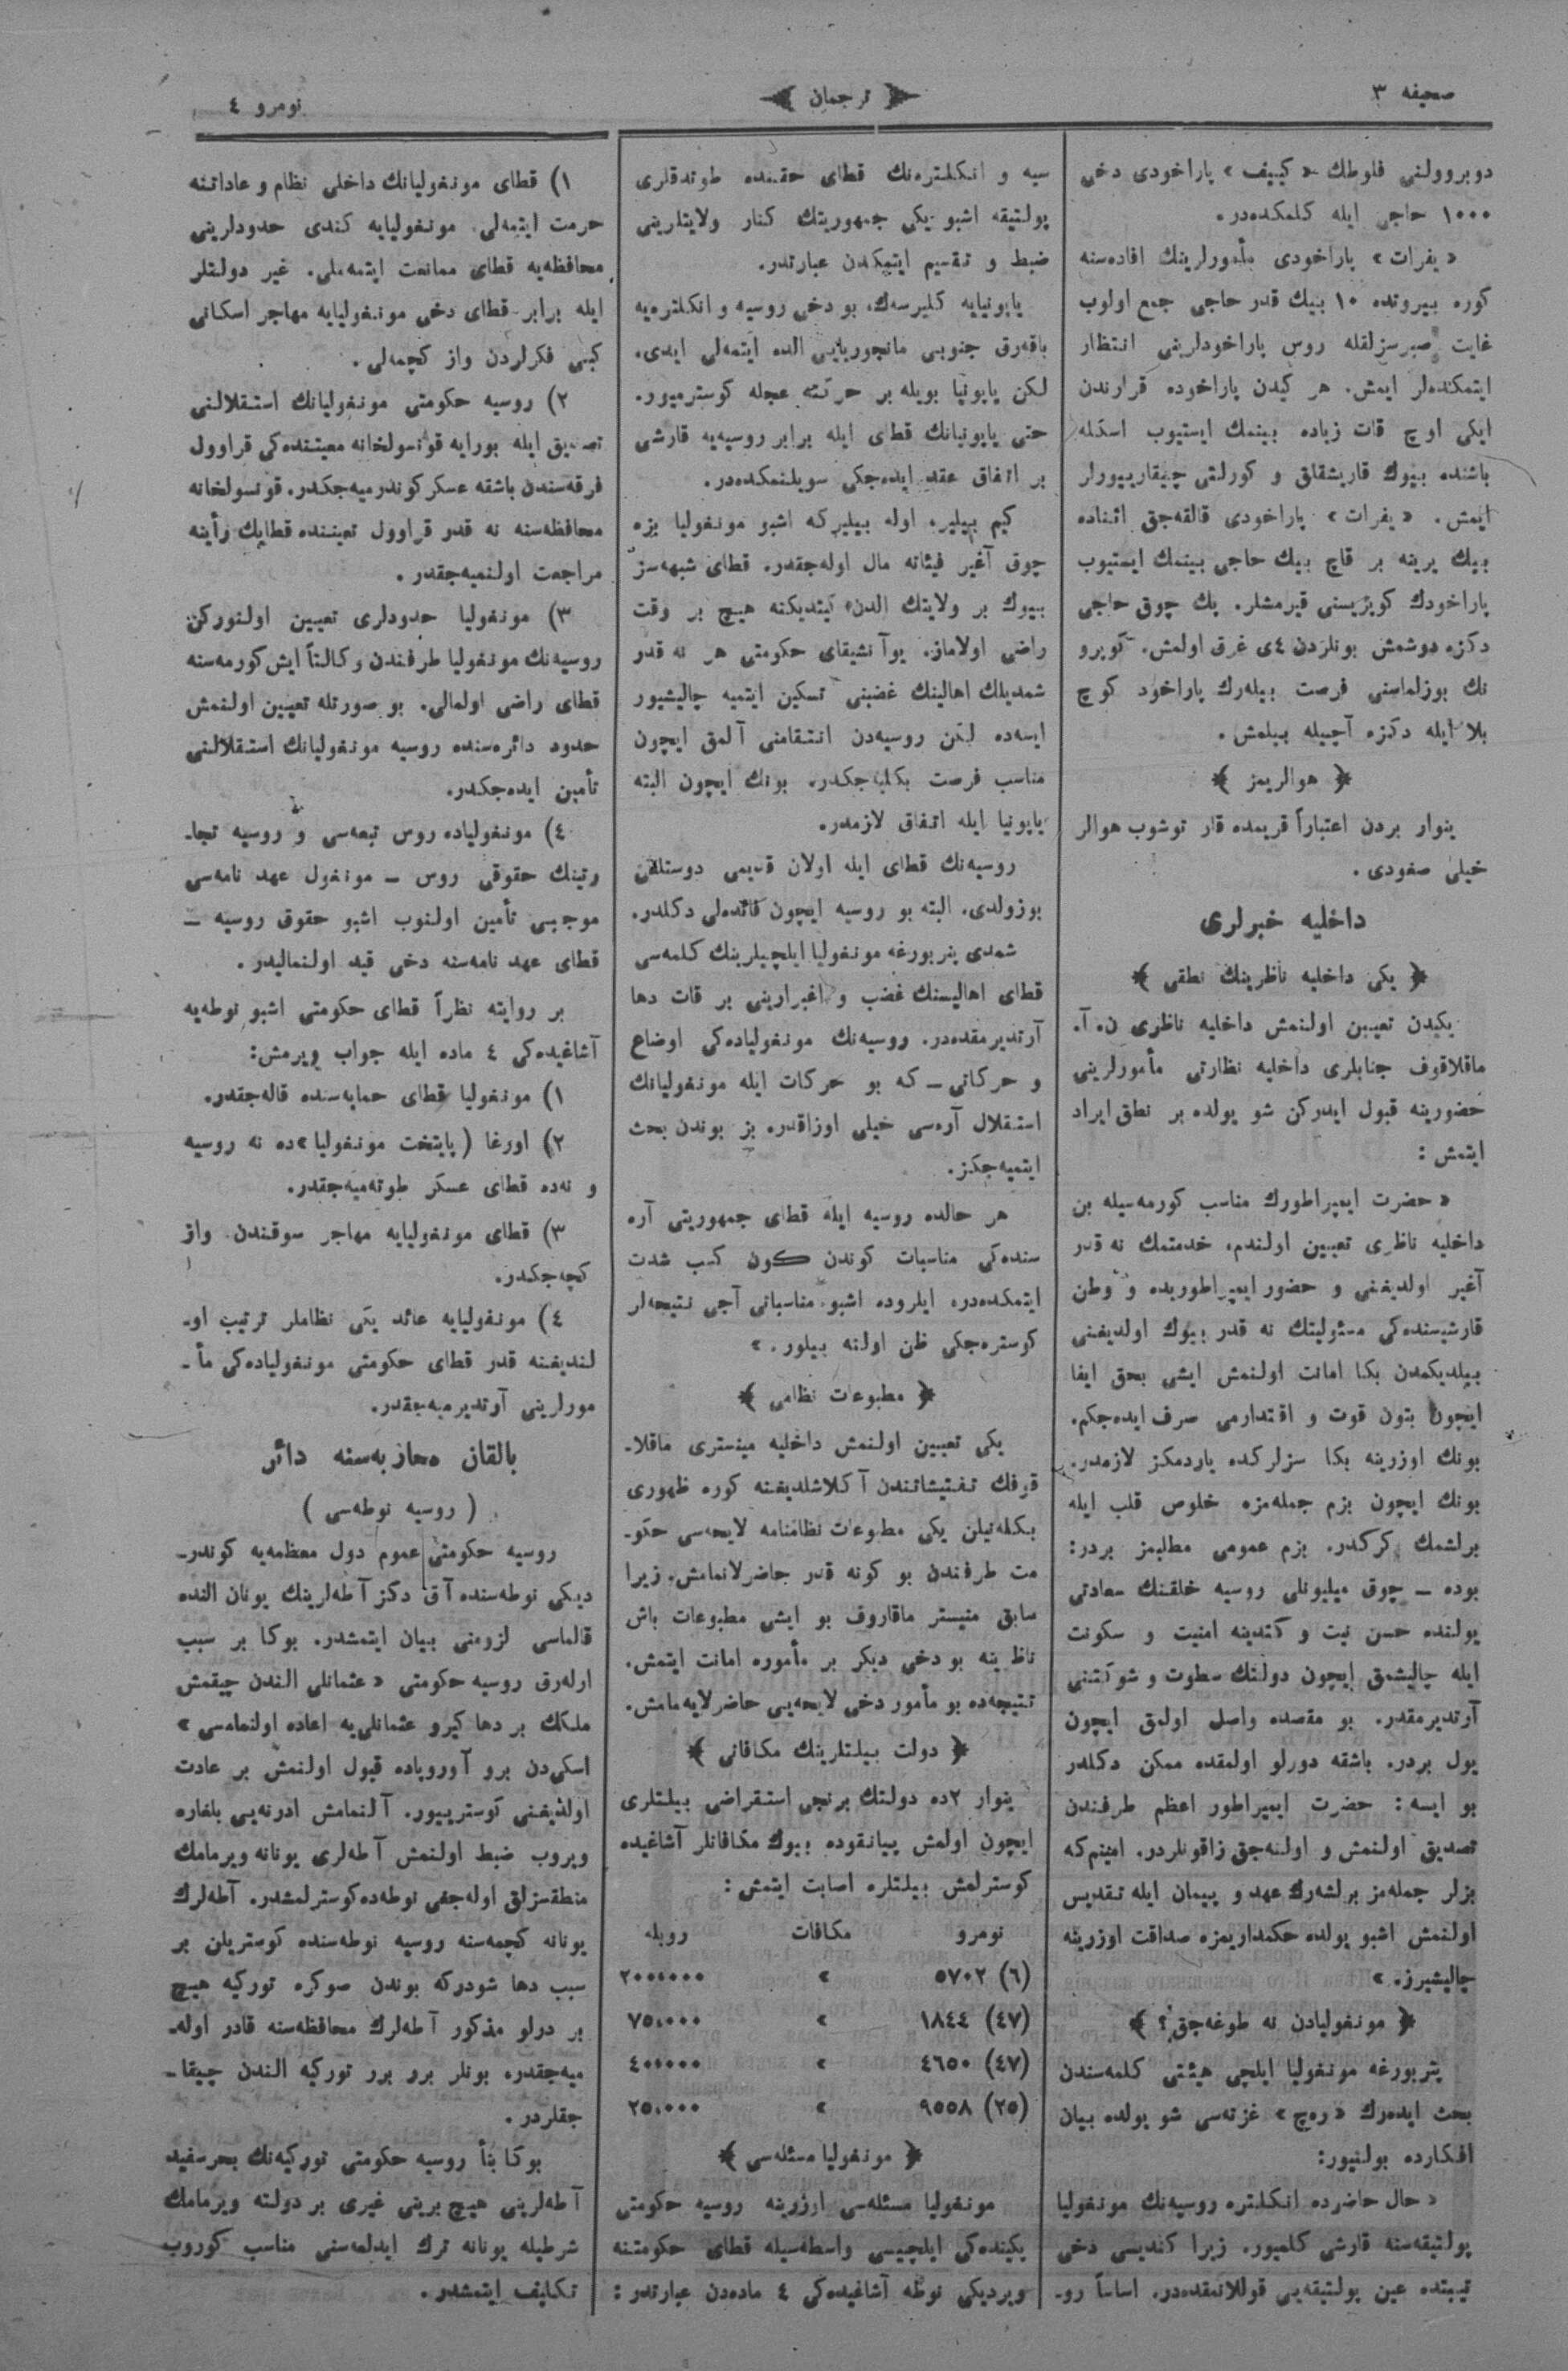 صحیفه ۳
ترجمان
نومرو ٤
دوبروولنی فلوطك « كییف » پاراخودی دخی
۱۰۰۰ حاجی ایله كلمكده‌در.
« یفرات » پاراخودی مأمورلرینك افاده‌سنه
كوره بیروتده ۱۰ بیك قدر حاجی جمع اولوب
غایت صبرسزلقله روس پاراخودلرینی انتظار
ایتمكده‌لر ایمش. هر كیدن پاراخوده قرارندن
ایكی اوچ قات زیاده بینمك ایستیوب اسكله
باشنده بیوك قاریشقلق و كورلتی چیقارییورلر
ایمش. « یفرات » پاراخودی قالقه‌جق اثناده
بیك یرینه بر قاچ بیك حاجی بینمك ایستیوب
پاراخودك كوپریسنی قیرمشلر. پك چوق حاجی
دكزه دوشمش بونلردن ٤ی غرق اولمش. كوپرو
نك بوزلماسنی فرصت بیله‌رك پاراخود كوچ
بلا ایله دكزه آچیله بیلمش.
﴿ هوالریمز ﴾
ینوار بردن اعتباراً قریمده قار توشوب هوالر
خیلی صغودی.
داخلیه خبرلری
﴿ یكی داخلیه ناظرینك نطقی ﴾
یكیدن تعیین اولنمش داخلیه ناظری ن. آ.
ماقلاقوف جنابلری داخلیه نظارتی مأمورلرینی
حضورینه قبول ایدركن شو یولده بر نطق ایراد
ایتمش :
« حضرت ایمپراطورك مناسب كورمه‌سیله بن
داخلیه ناظری تعیین اولندم، خدمتمك نه قدر
آغیر اولدیغنی و حضور ایمپراطوریده و وطن
قارشیسنده‌كی مسئولیتك نه قدر بیوك اولدیغنی
بیلدیكمدن بكا امانت اولنمش ایشی بحق ایفا
ایچون بتون قوت و اقتدارمی صرف ایده‌جكم.
بونك اوزرینه بكا سزلركده یاردمكز لازمدر.
بونك ایچون بزم جمله‌مزه خلوص قلب ایله
برلشمك كركدر. بزم عمومی مطلبمز بردر:
بوده ـ چوق میلیونلی روسیه خلقنك سعادتی
یولنده حسن نیت و كتدینه امنیت و سكونت
ایله چالیشمق ایچون دولتك سطوت و شوكتنی
آرتدیرمقدر. بو مقصده واصل اولمق ایچون
یول بردر. باشقه دورلو اولمقده ممكن دكلدر
بو ایسه : حضرت ایمپراطور اعظم طرفندن
تصدیق اولنمش و اولنه‌جق زاقونلردر. امینم كه
بزلر جمله‌مز برلشه‌رك عهد و پیمان ایله تقدیس
اولنمش اشبو یولده حكمداریمزه صداقت اوزرینه
چالیشیرز. »
﴿ مونغولیادن نه طوغه‌جق؟ ﴾
پتربورغه مونغولیا ایلچی هیئتی كلمه‌سندن
بحث ایده‌رك « ره‌چ » غزته‌سی شو یولده بیان
افكارده بولنیور:
« حال حاضرده انكلتره روسیه‌نك مونغولیا
پولتیقه‌سنه قارشی كلمیور. زیرا كندیسی دخی
تیبتده عین پولتیقه‌یی قوللانمقده‌در. اساساً رو-
سیه و انكلتره‌نك قطای حقنده طوتدقلری
پولتیقه اشبو یكی جمهوریتك كنار ولایتلرینی
ضبط و تقسیم ایتمكدن عبارتدر.
یاپونیایه كلیرسه‌ك، بو دخی روسیه و انكلتره‌یه
باقه‌رق جنوبی مانچوریایی الده ایتمه‌لی ایدی.
لكن یاپونیا بویله بر حركته عجله كوسترمیور.
حتی یاپونیانك قطای ایله برابر روسیه‌یه قارشی
بر اتفاق عقد ایده‌جكی سویلنمكده‌در.
كیم بیلیر، اوله بیلیر كه اشبو مونغولیا بزه
چوق آغیر فیئاته مال اوله‌جقدر. قطای شبهه‌سز
بیوك بر ولایتك الدن كیتدیكنه هیچ بر وقت
راضی اولاماز. یوآنشیقای حكومتی هر نه قدر
شمدیلك اهالینك غضبنی تسكین ایتمیه چالیشیور
ایسه‌ده لكن روسیه‌دن انتقامنی آلمق ایچون
مناسب فرصت بكلیه‌جكدر. بونك ایچون البته
یاپونیا ایله اتفاق لازمدر.
روسیه‌نك قطای ایله اولان قدیمی دوستلغی
بوزولدی. البته بو روسیه ایچون فائده‌لی دكلدر.
شمدی پتربورغه مونغولیا ایلچیلرینك كلمه‌سی
قطای اهالیسنك غضب و اغبرارینی بر قات دها
آرتدیرمقده‌در. روسیه‌نك مونغولیاده‌كی اوضاع
و حركاتی ـ كه بو حركات ایله مونغولیانك
استقلال آره‌سی خیلی اوزاقدر. بز بوندن بحث
ایتمیه‌جكز.
هر حالده روسیه ایله قطای جمهوریتی آره
سنده‌كی مناسبات كوندن كون كسب شدت
ایتمكده‌در. ایلروده اشبو مناسباتی آجی نتیجه‌لر
كوستره‌جكی ظن اولنه بیلور. »
﴿ مطبوعات نظامی ﴾
یكی تعیین اولنمش داخلیه مینستری ماقلا-
قوفك تفتیشاتندن آكلاشلدیغنه كوره ظهوری
بكله‌نیلن یكی مطبوعات نظامنامه لایحه‌سی حكو-
مت طرفندن بو كونه قدر حاضرلانمامش. زیرا
سابق منیستر ماقاروف بو ایشی مطبوعات باش
ناظرینه بو دخی دیكر بر مأموره امانت ایتمش.
نتیجه‌ده بو مأمور دخی لایحه‌یی حاضرلایه‌مامش.
﴿ دولت بیلتلرینك مكافاتی ﴾
ینوار ۲ده دولتك برنجی استقراضی بیلتلری
ایچون اولمش پیانقوده بیوك مكافاتلر آشاغیده
كوسترلمش بیلتلره اصابت ایتمش :
نومرو مكافات روبله
(٦) ٥٧٠٢ » ٢٠٠٠٠٠
(٤٧) ١٨٤٤ » ٧٥٠٠٠
(٤٧) ٤٦٥٠ » ٤٠٠٠٠
(٢٥) ٩٥٥٨ » ٢٥٠٠٠
﴿ مونغولیا مسئله‌سی ﴾
مونغولیا مسئله‌سی اوزرینه روسیه حكومتی
پكینده‌كی ایلچیسی واسطه‌سیله قطای حكومتنه
ویردیكی نوطه آشاغیده‌كی ٤ ماده‌دن عبارتدر :
۱) قطای مونغولیانك داخلی نظام و عاداتنه
حرمت ایتمه‌لی. مونغولیایه كندی حدودلرینی
محافظه‌یه قطای ممانعت ایتمه‌ملی. غیر دولتلر
ایله برابر قطای دخی مونغولیایه مهاجر اسكانی
كبی فكرلردن واز كچمه‌لی.
۲) روسیه حكومتی مونغولیانك استقلالنی
تصدیق ایله بورایه قونسولخانه معیتنده‌كی قراوول
فرقه‌سندن باشقه عسكر كوندرمیه‌جكدر. قونسولخانه
محافظه‌سنه نه قدر قراوول تعییننده قطایك رأینه
مراجعت اولنمیه‌جقدر.
۳) مونغولیا حدودلری تعیین اولنوركن
روسیه‌نك مونغولیا طرفندن وكالتاً ایش كورمه‌سنه
قطای راضی اولمالی. بو صورتله تعیین اولنمش
حدود دائره‌سنده روسیه مونغولیانك استقلالنی
تأمین ایده‌جكدر.
٤) مونغولیاده روس تبعه‌سی و روسیه تجا-
رتینك حقوقی روس ـ مونغول عهد نامه‌سی
موجبی تأمین اولنوب اشبو حقوق روسیه ـ
قطای عهد نامه‌سنه دخی قید اولنمالیدر.
بر روایته نظراً قطای حكومتی اشبو نوطه‌یه
آشاغیده‌كی ٤ ماده ایله جواب ویرمش:
۱) مونغولیا قطای حمایه‌سنده قاله‌جقدر.
۲) اورغا (پایتخت مونغولیا)ده نه روسیه
و نه‌ده قطای عسكر طوته‌میه‌جقدر.
۳) قطای مونغولیایه مهاجر سوقندن واز
كچه‌جكدر.
٤) مونغولیایه عائد یكی نظاملر ترتیب او-
لندیغنه قدر قطای حكومتی مونغولیاده‌كی مأ-
مورلرینی آرتدیرمیه‌جقدر.
بالقان محاربه‌سنه دائر
( روسیه نوطه‌سی )
روسیه حكومتی عموم دول معظمه‌یه كوندر-
دیكی نوطه‌سنده آق دكز آطه‌لرینك یونان النده
قالماسی لزومنی بیان ایتمشدر. بوكا بر سبب
اوله‌رق روسیه حكومتی « عثمانلی الندن چیقمش
ملكك بر دها كیرو عثمانلی‌یه اعاده اولنمامسی »
اسكی‌دن برو آوروپاده قبول اولنمش بر عادت
اولدیغنی كوسترییور. آلنمامش ادرنه‌یی بلغاره
ویروب ضبط اولنمش آطه‌لری یونانه ویرمامك
منطقسزلق اوله‌جغی نوطه‌ده كوسترلمشدر. آطه‌لرك
یونانه كچمه‌سنه روسیه نوطه‌سنده كوستریلن بر
سبب دها شودركه بوندن صوكره توركیه هیچ
بر درلو مذكور آطه‌لرك محافظه‌سنه قادر اوله-
میه‌جقدر. بونلر برر برر توركیه الندن چیقا-
جقلردر.
بوكا بنأ روسیه حكومتی توركیه‌نك بحرسفید
آطه‌لرینی هیچ برینی غیری بر دولته ویرمامك
شرطیله یونانه ترك ایدلمه‌سنی مناسب كوروب
تكلیف ایتمشدر.